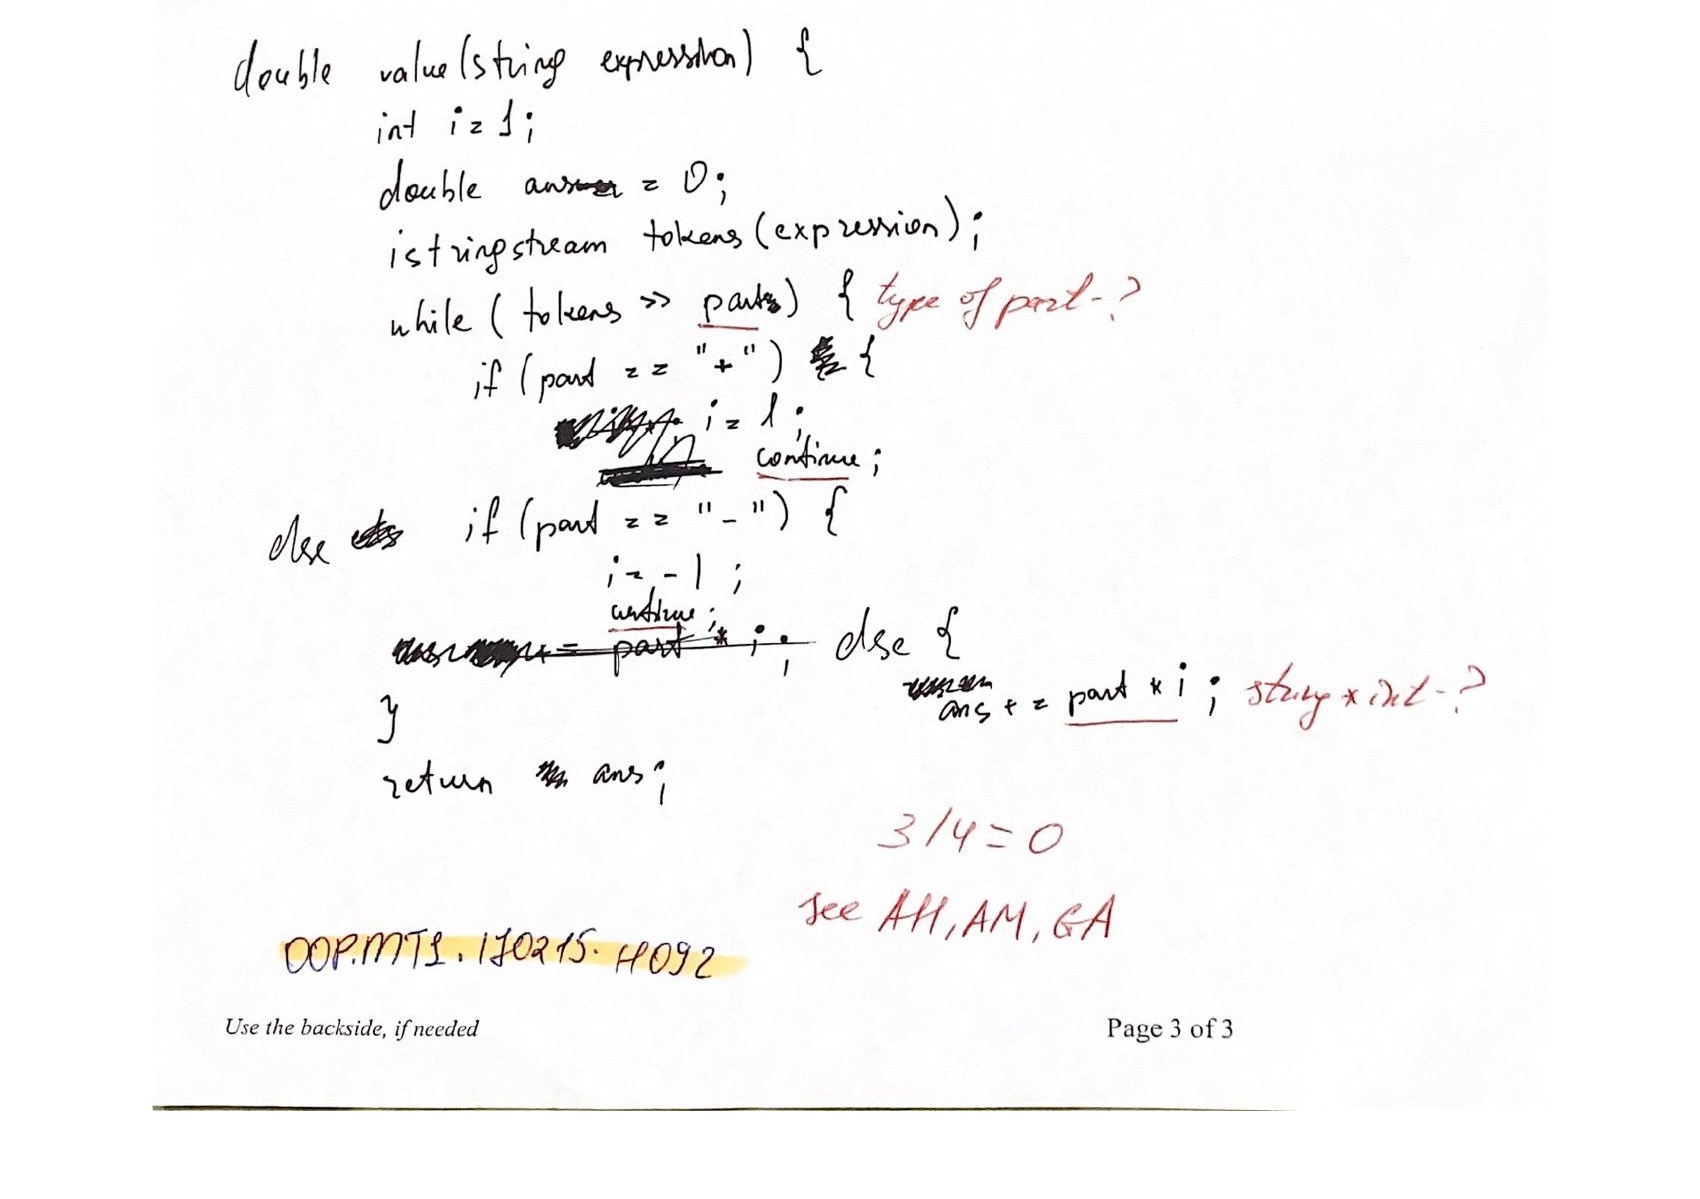 double value(string expression) {
int i = 1;
double ans = 0;
istringstream tokens(expression);
while ( tokens >> part) { type of part - ?
if (part == "+") {
i = 1;
continue;
else if (part == "-") {
i = -1 ;
continue;
part * i ; else {
ans += part * i ; string * int - ?
}
return ans;
3/4=0
see AH, AM, GA
OOP.MT1.170215.H092
Use the backside, if needed
Page 3 of 3